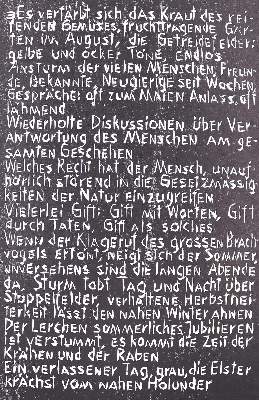 Es verfärbt sich das Kraut des rei-
fenden Gemüses, fruchttragende Gär-
ten im August, die Getreidefelder:
gelbe und ocker Töne, endlos
Ansturm der vielen Menschen, Freun-
de, Bekannte, Neugierige seit Wochen,
Gespräche: oft zum xnaten Anlass, oft
lähmend
Wiederholte Diskussionen über Ver-
antwortung des Menschen am ge-
samten Geschehen
Welches Recht hat der Mensch, unauf-
hörlich störend in die Gesetzmässig-
keiten der Natur einzugreifen
Vielerlei Gift: Gift mit Worten, Gift
durch Taten, Gift als solches
Wenn der Klageruf des grossen Brach
vogels ertönt, neigt sich der Sommer,
unversehens sind die langen Abende
da. Sturm tobt Tag und Nacht über
Stoppelfelder, verhaltene Herbsthei-
terkeit lässt den nahen Winter ahnen
Der Lerchen sommerliches Jubilieren
ist verstummt, es kommt die Zeit der
Krähen und der Raben
Ein verlassener Tag, grau, die Elster
krächst vom nahen Holunder